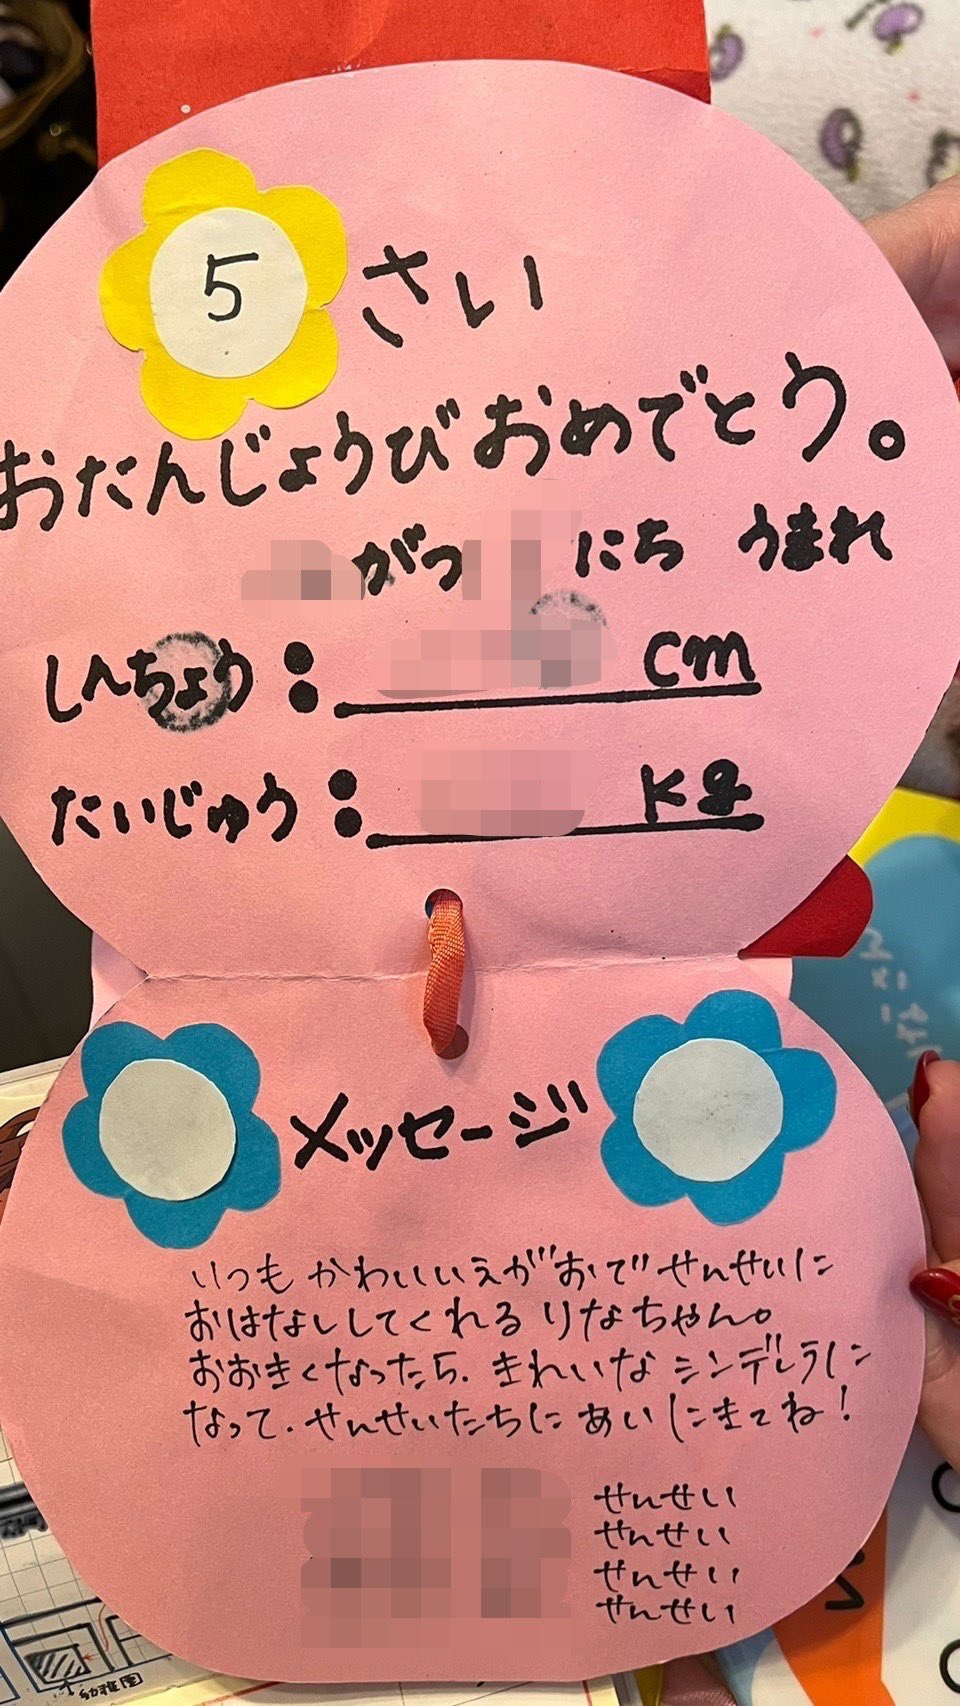 5 さい
おたんじょうびおめでとう。
がつ にち うまれ
しんちょう: cm
たいじゅう: kg
メッセージ
いつも かわいいえがおで せんせいに
おはなししてくれる りなちゃん。
おおきくなったら、きれいな シンデレラに
なって、せんせいたちに あいにきてね!
せんせい
せんせい
せんせい
せんせい
幼稚園